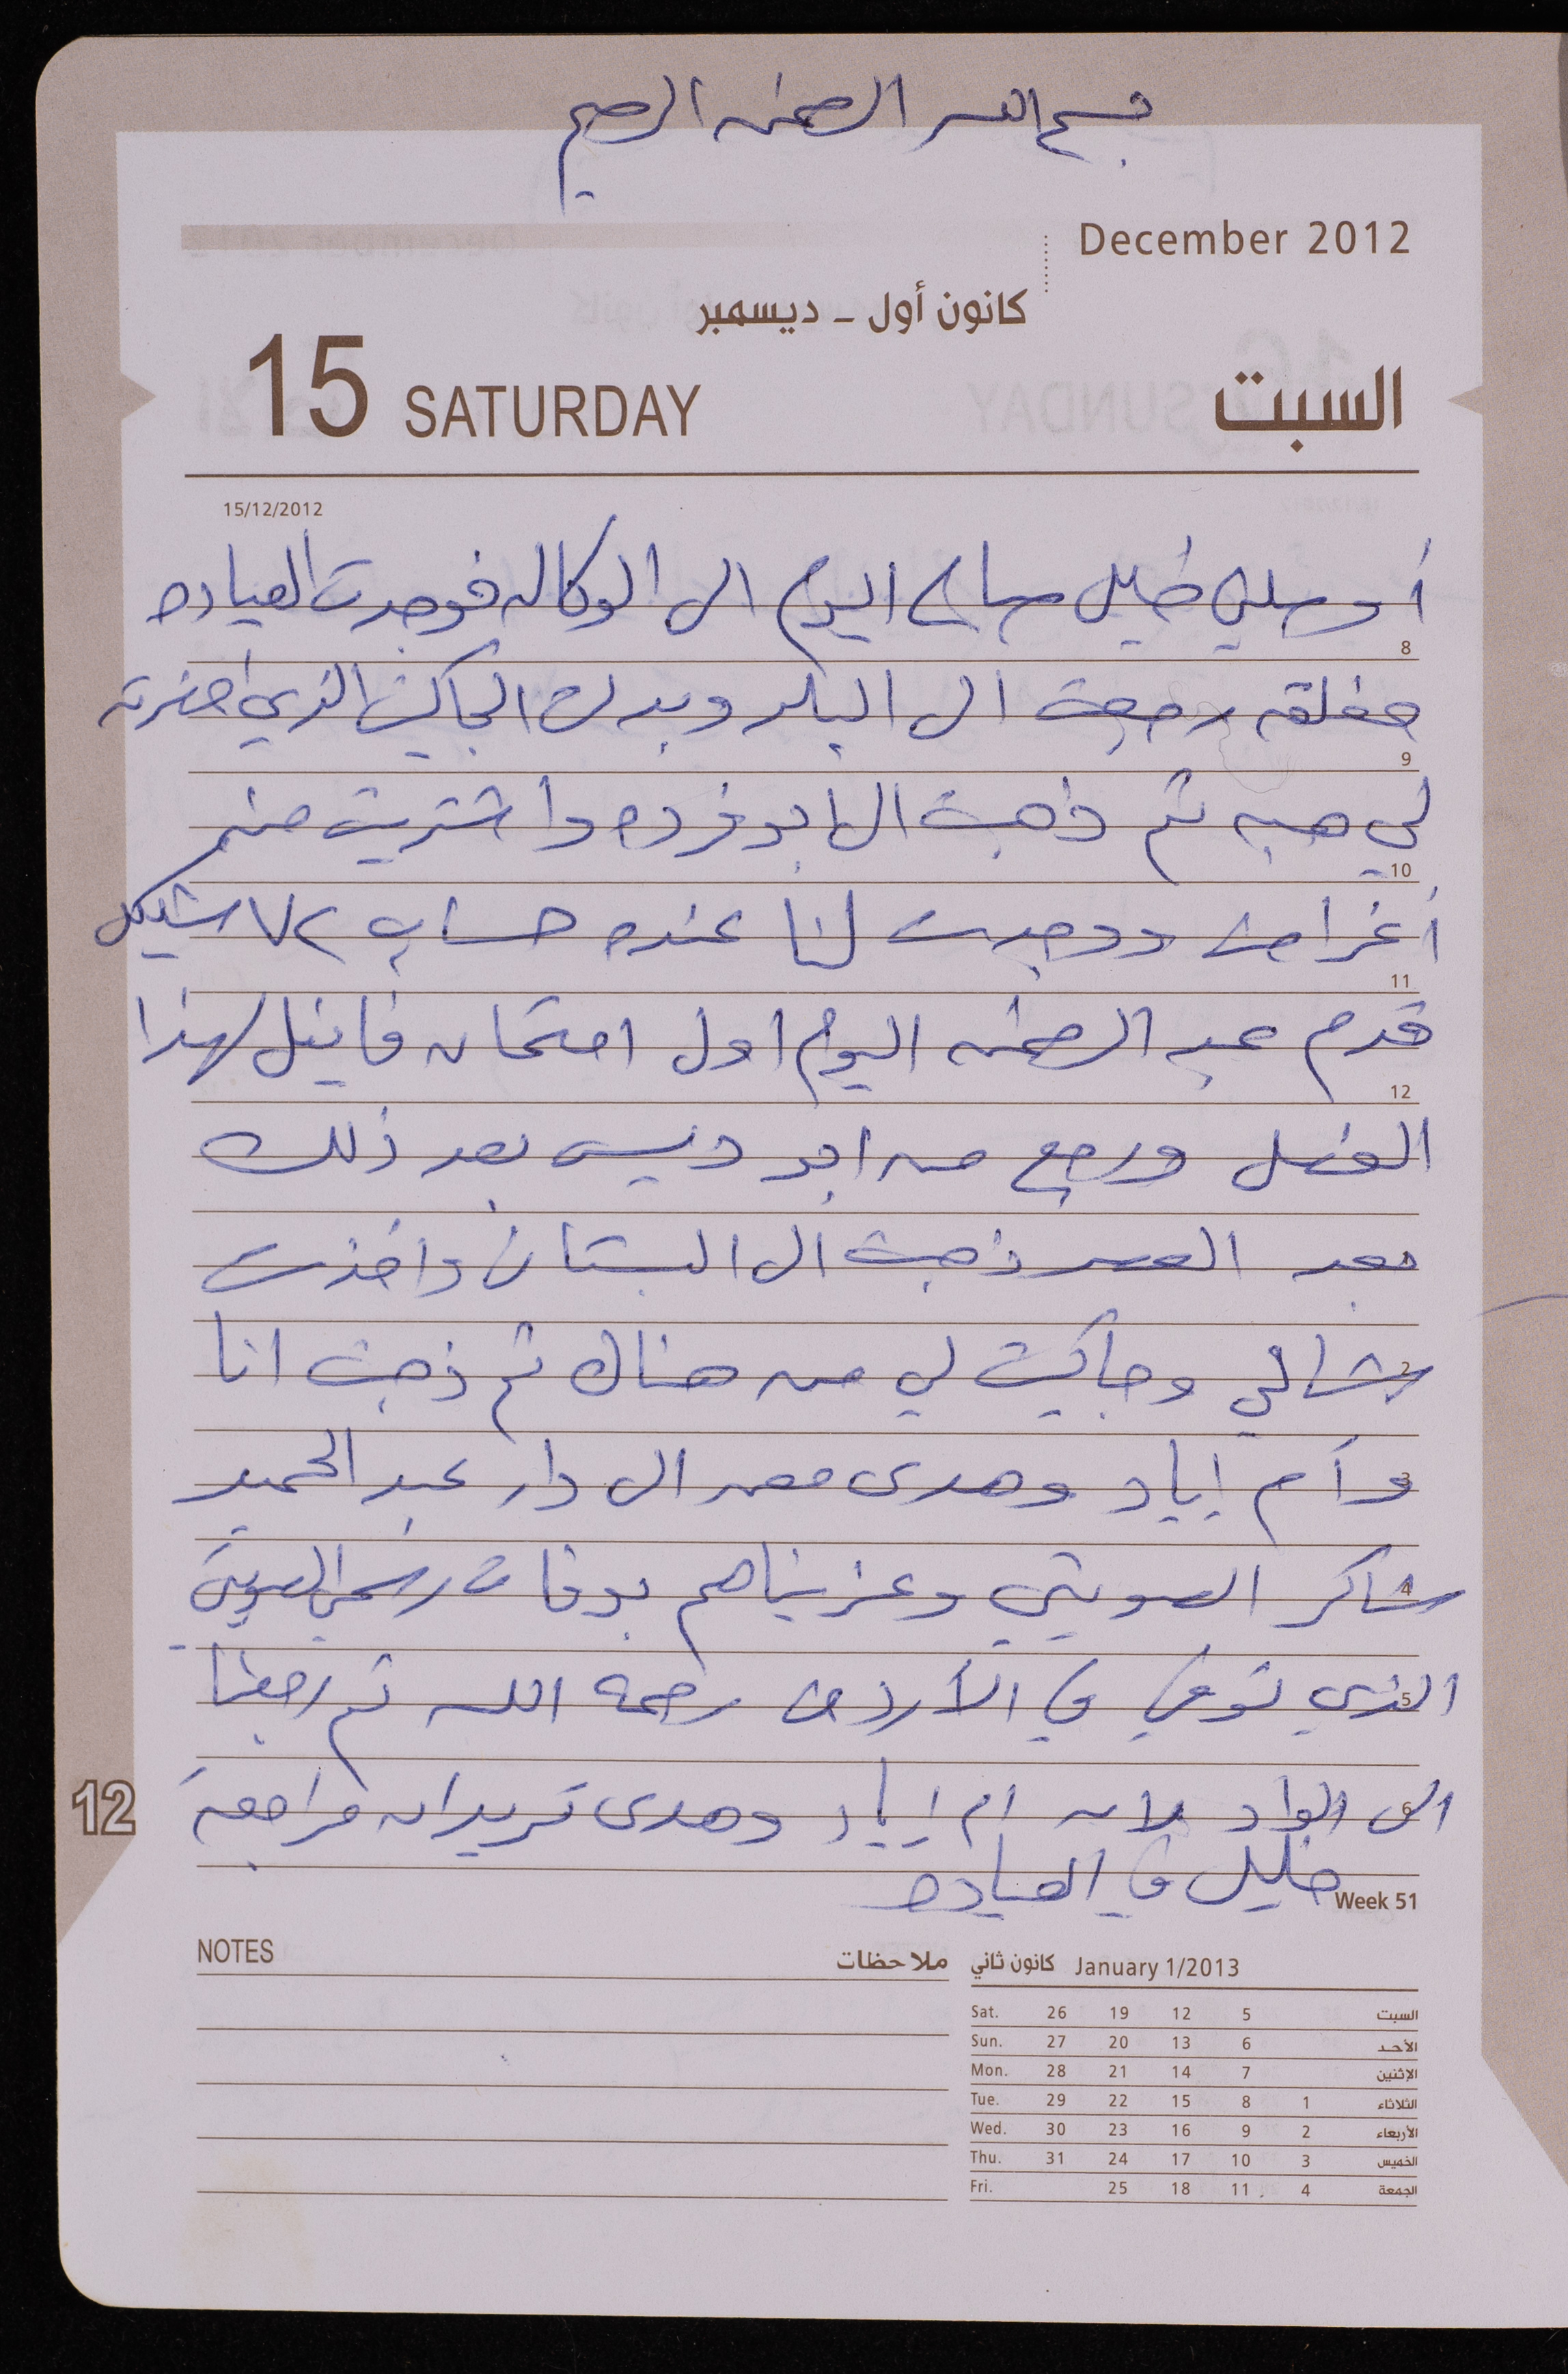 بسم الله الرحمن الرحيم
December 2012
كانون أول - ديسمبر
15 SATURDAY السبت
15/12/2012
أوصلني خليل سالم اليوم الى الوكاله فوجدت العياده
8
مغلقه رجعت الى البلد وبدلت الجاكيت الذي احضرته
9
لي هبه ثم ذهبت الى ابو فرده واشتريت منه
10
أغراض ووجدت لنا عنده حساب ٧٢ شيكل
11
قدم عبد الرحمن اليوم اول امتحان فاينل لهذا
12
الفصل ورجع من ابو ديس بعد ذلك
بعد العصر ذهبت الى البستان واخذت
2
شالي وجاكيت لي من هناك ثم ذهبت انا
3
وأم اياد وهدى معه الى دار عبد الحميد
4
شاكر الصويتي وعزيناهم بوفات رسمي الصويتي
5
الذي توفي في الأردن رحمه الله ثم رجعنا
6
الى الواد لان ام اياد وهدى تريدان مراجعة
12
خليل في العياده
Week 51
NOTES ملاحظات
كانون ثاني January 1/2013
Sat. 26 19 12 5 السبت
Sun. 27 20 13 6 الأحد
Mon. 28 21 14 7 الإثنين
Tue. 29 22 15 8 1 الثلاثاء
Wed. 30 23 16 9 2 الأربعاء
Thu. 31 24 17 10 3 الخميس
Fri. 25 18 11 4 الجمعة